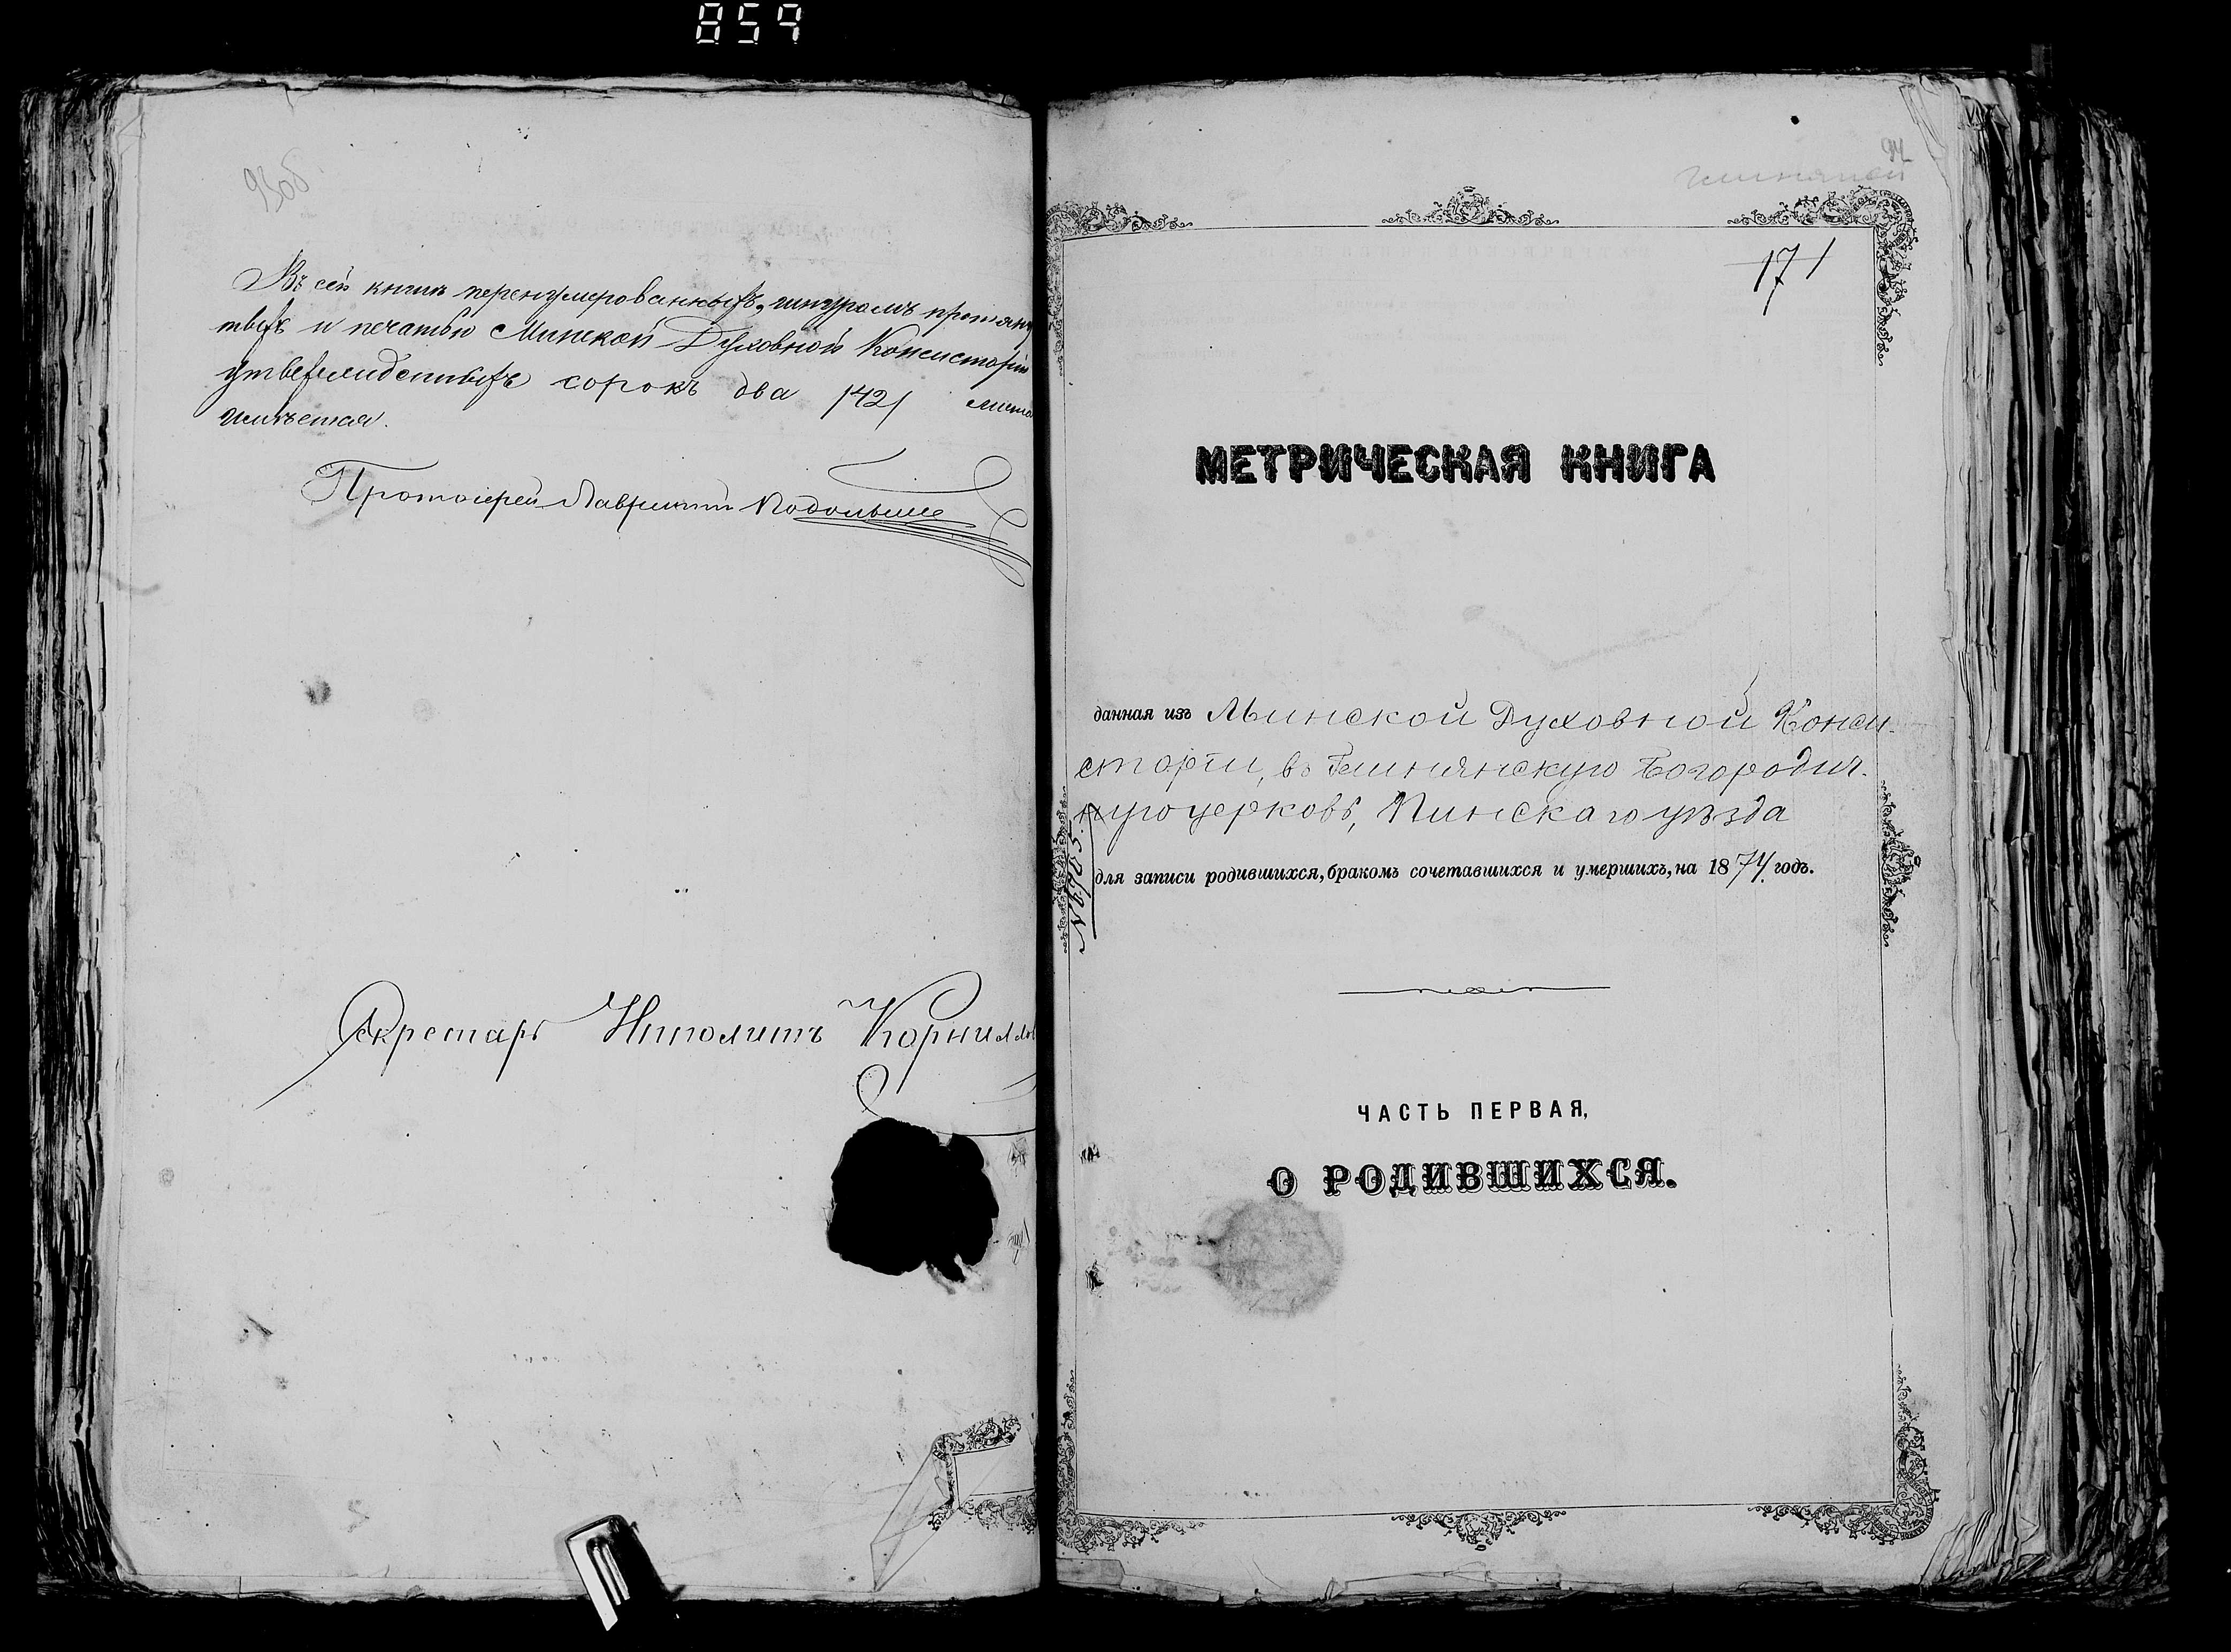 859
93об
Въ сей книгѣ перенумерованныхъ, шнуромъ протяну
тыхъ и печатью Минской Духовной Консисторіи
утвержденныхъ сорокъ два /42/ листа
имѣется.
Протоіерей Лаврентій
Секретарь Ипполитъ Корнил
94
171
МЕТРИЧЕСКАЯ КНИГА
данная изъ Минской Духовной Конси-
сторіи, въ Глинянскую Богородич-
ную церковь, Пинскаго уѣзда
для записи родившихся, бракомъ сочетавшихся и умершихъ, на 1874 годъ.
ЧАСТЬ ПЕРВАЯ,
О РОДИВШИХСЯ.